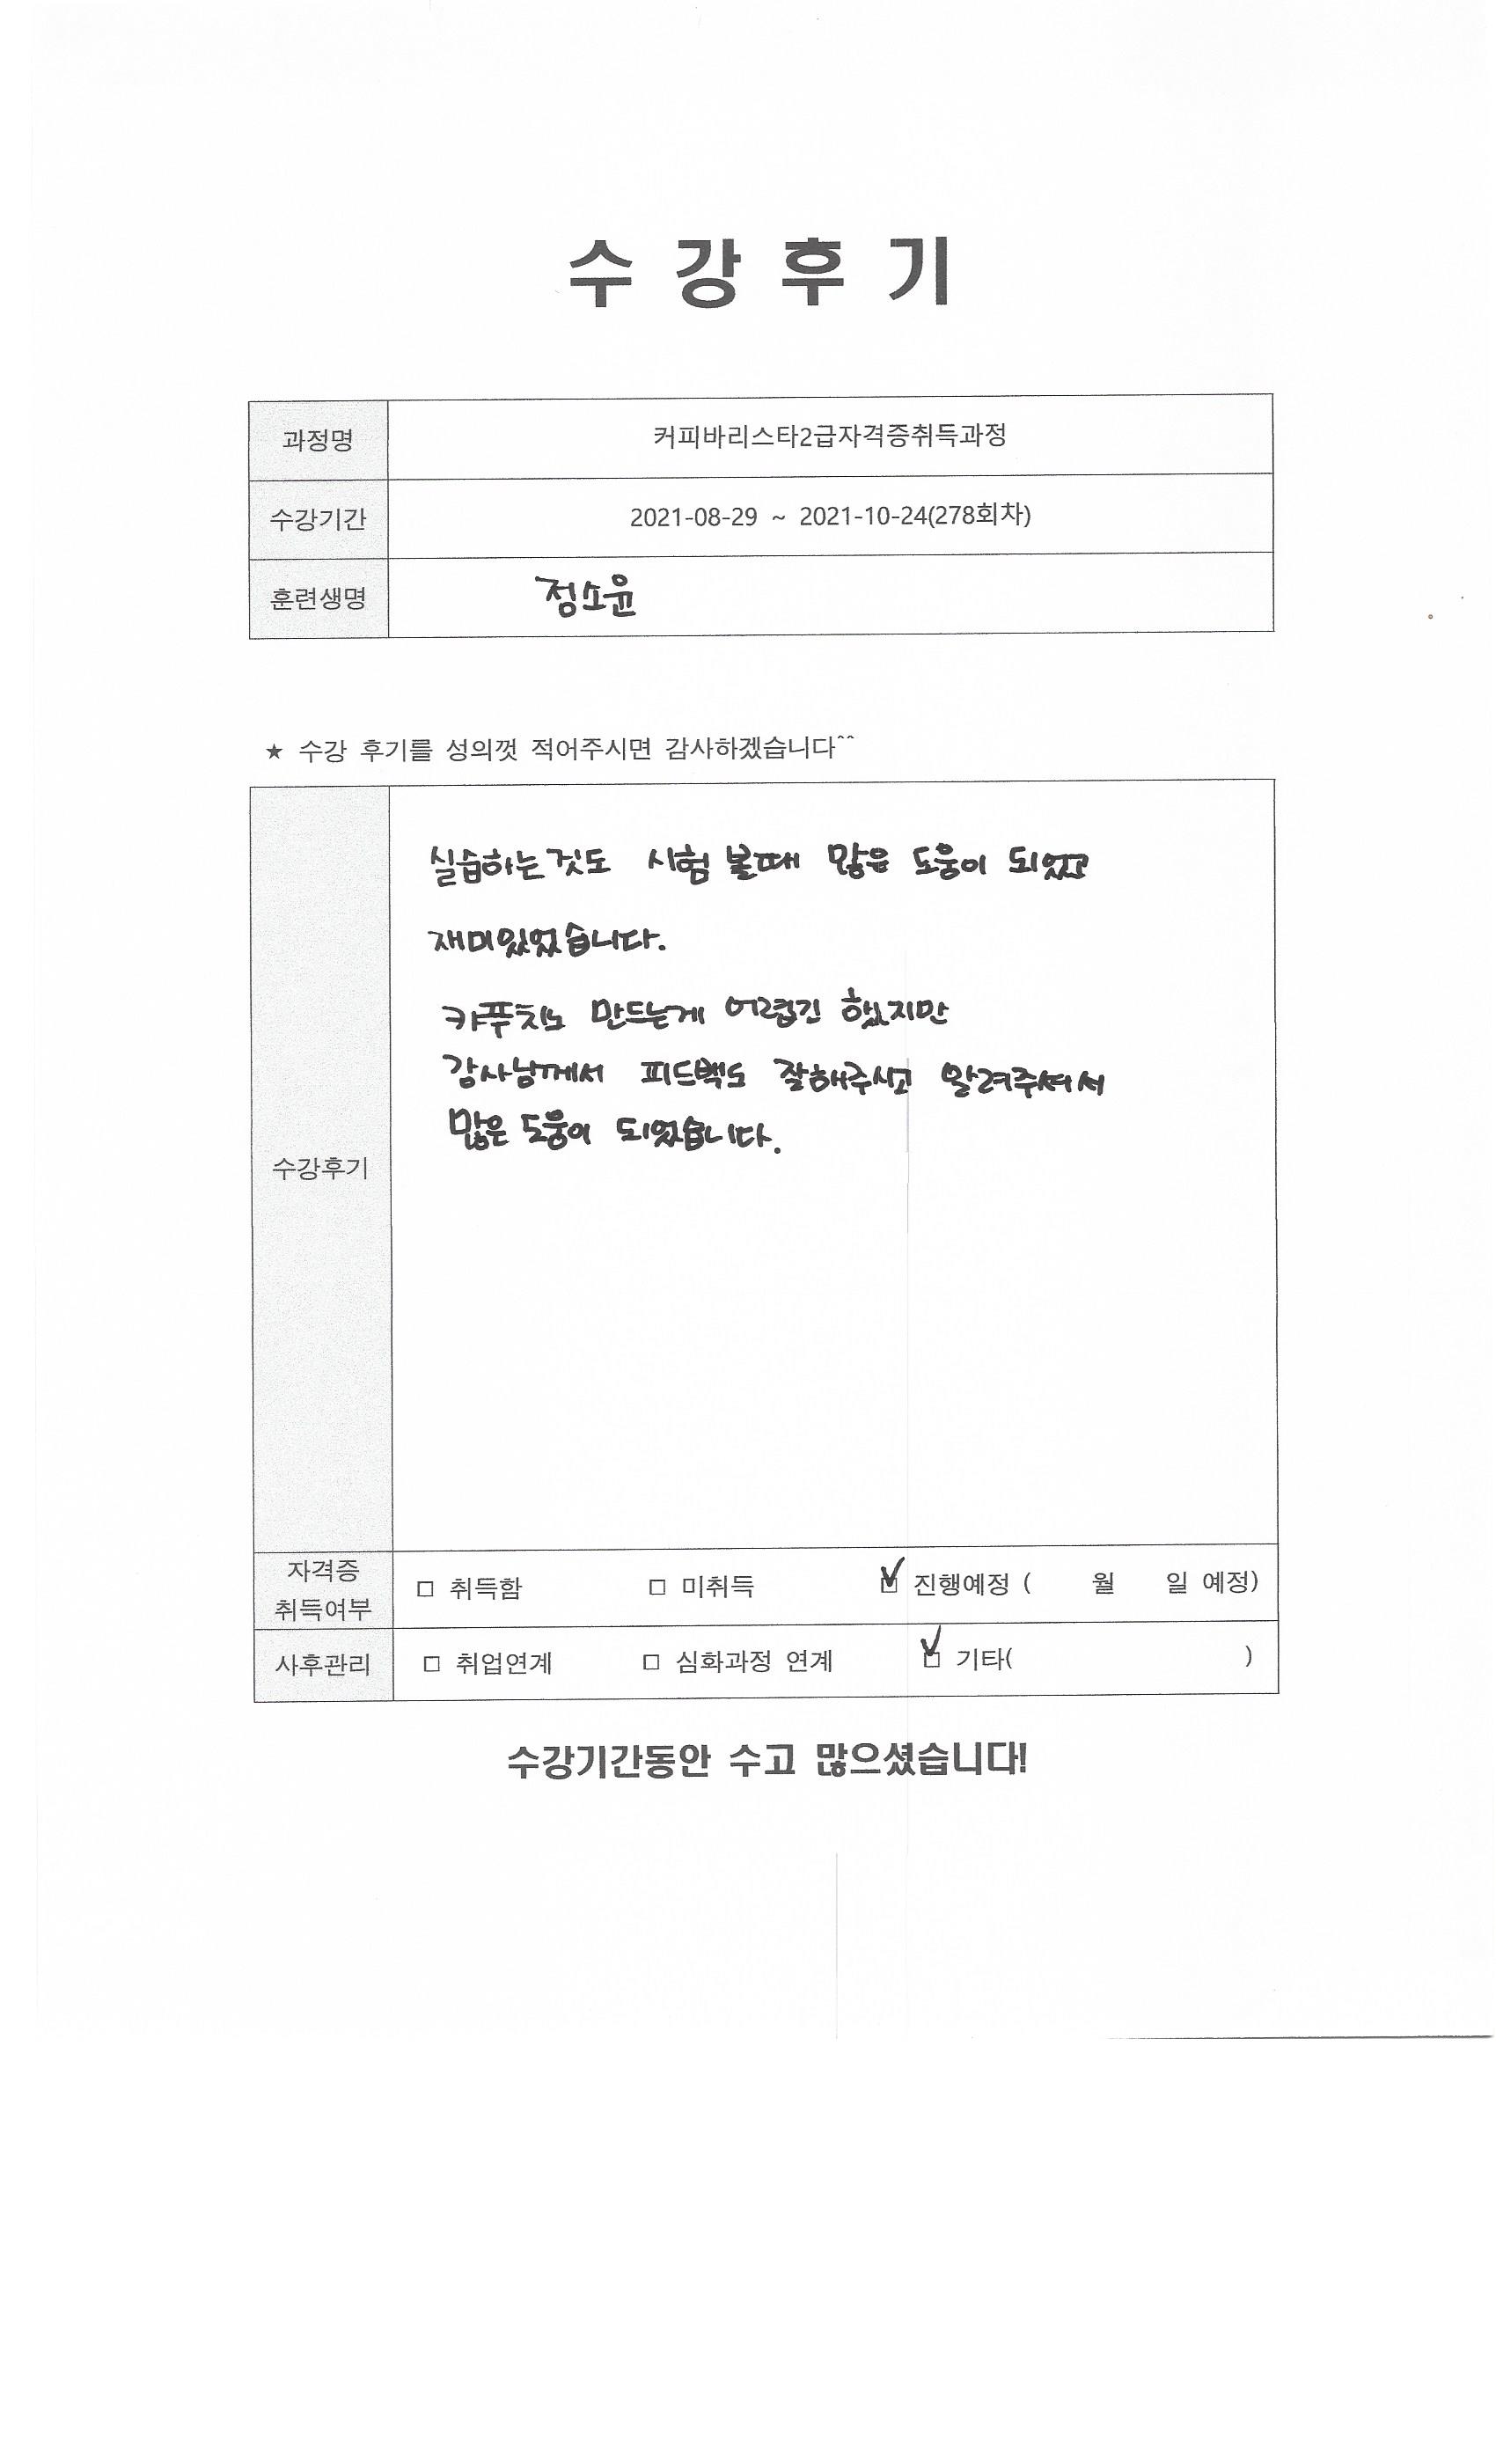 수 강 후 기
과정명 커피바리스타2급자격증취득과정
수강기간 2021-08-29 ~ 2021-10-24(278회차)
훈련생명 정소윤
★ 수강 후기를 성의껏 적어주시면 감사하겠습니다^^
실습하는것도 시험 볼때 많은 도움이 되었고
재미있었습니다.
캬푸치노 만드는게 어렵긴 했지만
강사님께서 피드백도 잘해주시고 알려주셔서
많은 도움이 되었습니다.
수강후기
자격증
취득여부
□ 취득함 □ 미취득 ☑ 진행예정 ( 월 일 예정)
사후관리 □ 취업연계 □ 심화과정 연계 ☑ 기타( )
수강기간동안 수고 많으셨습니다!